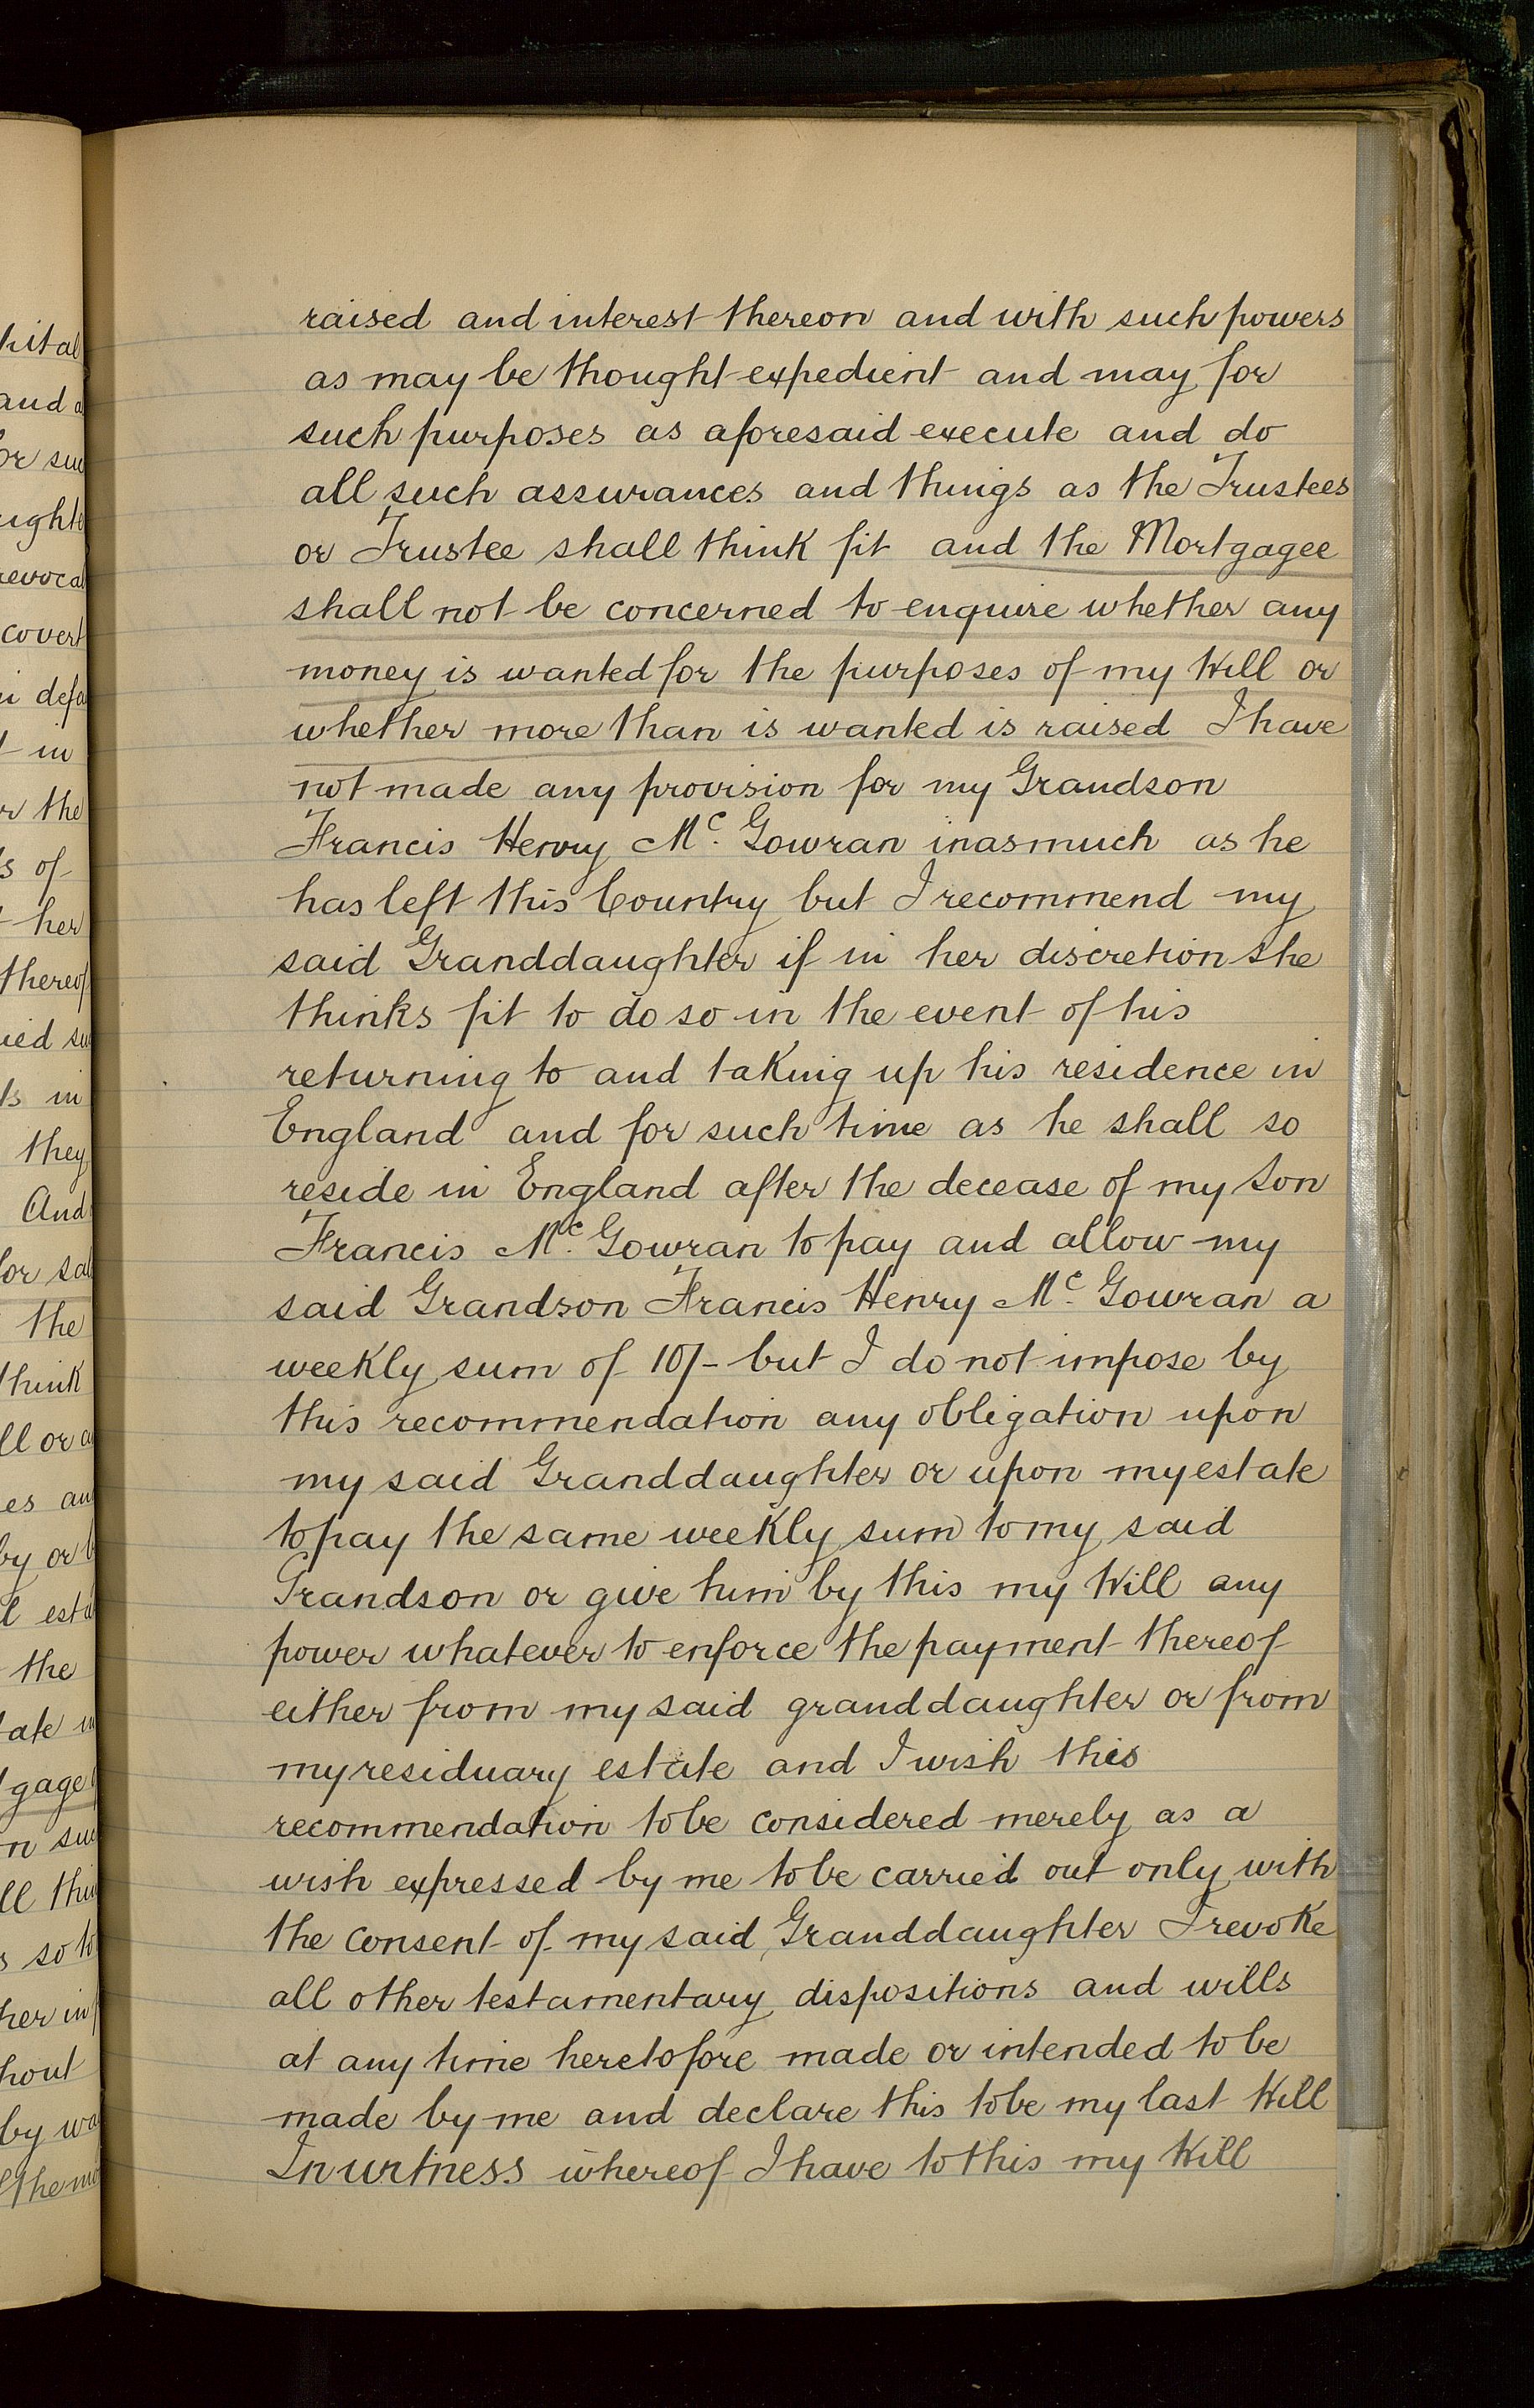 raised and interest thereon and with such powers
as may be thought expedient and may for
such purposes as aforesaid execute and do
all such assurances and things as the Trustees
or Trustee shall think fit and the Mortgagee
shall not be concerned to enquire whether any
money is wanted for the purposes of my Will or
whether more than is wanted is raised I have
not made any provision for my Grandson
Francis Henry Mc. Gowran inasmuch as he
has left this Country but I recommend my
said Granddaughter if in her discretion she
thinks fit to do so in the event of his
returning to and taking up his residence in
England and for such time as he shall so
reside in England after the decease of my Son
Francis Mc. Gowran to pay and allow my
said Grandson Francis Henry Mc. Gowran a
weekly sum of 10/- but I do not impose by
this recommendation any obligation upon
my said Granddaughter or upon my estate
to pay the same weekly sum to my said
Grandson or give him by this my Will any
power whatever to enforce the payment thereof
either from my said granddaughter or from
my residuary estate and I wish this
recommendation to be considered merely as a
wish expressed by me to be carried out only with
the consent of my said Granddaughter I revoke
all other testamentary dispositions and wills
at any time heretofore made or intended to be
made by me and declare this to be my last Will
In witness whereof I have to this my Will